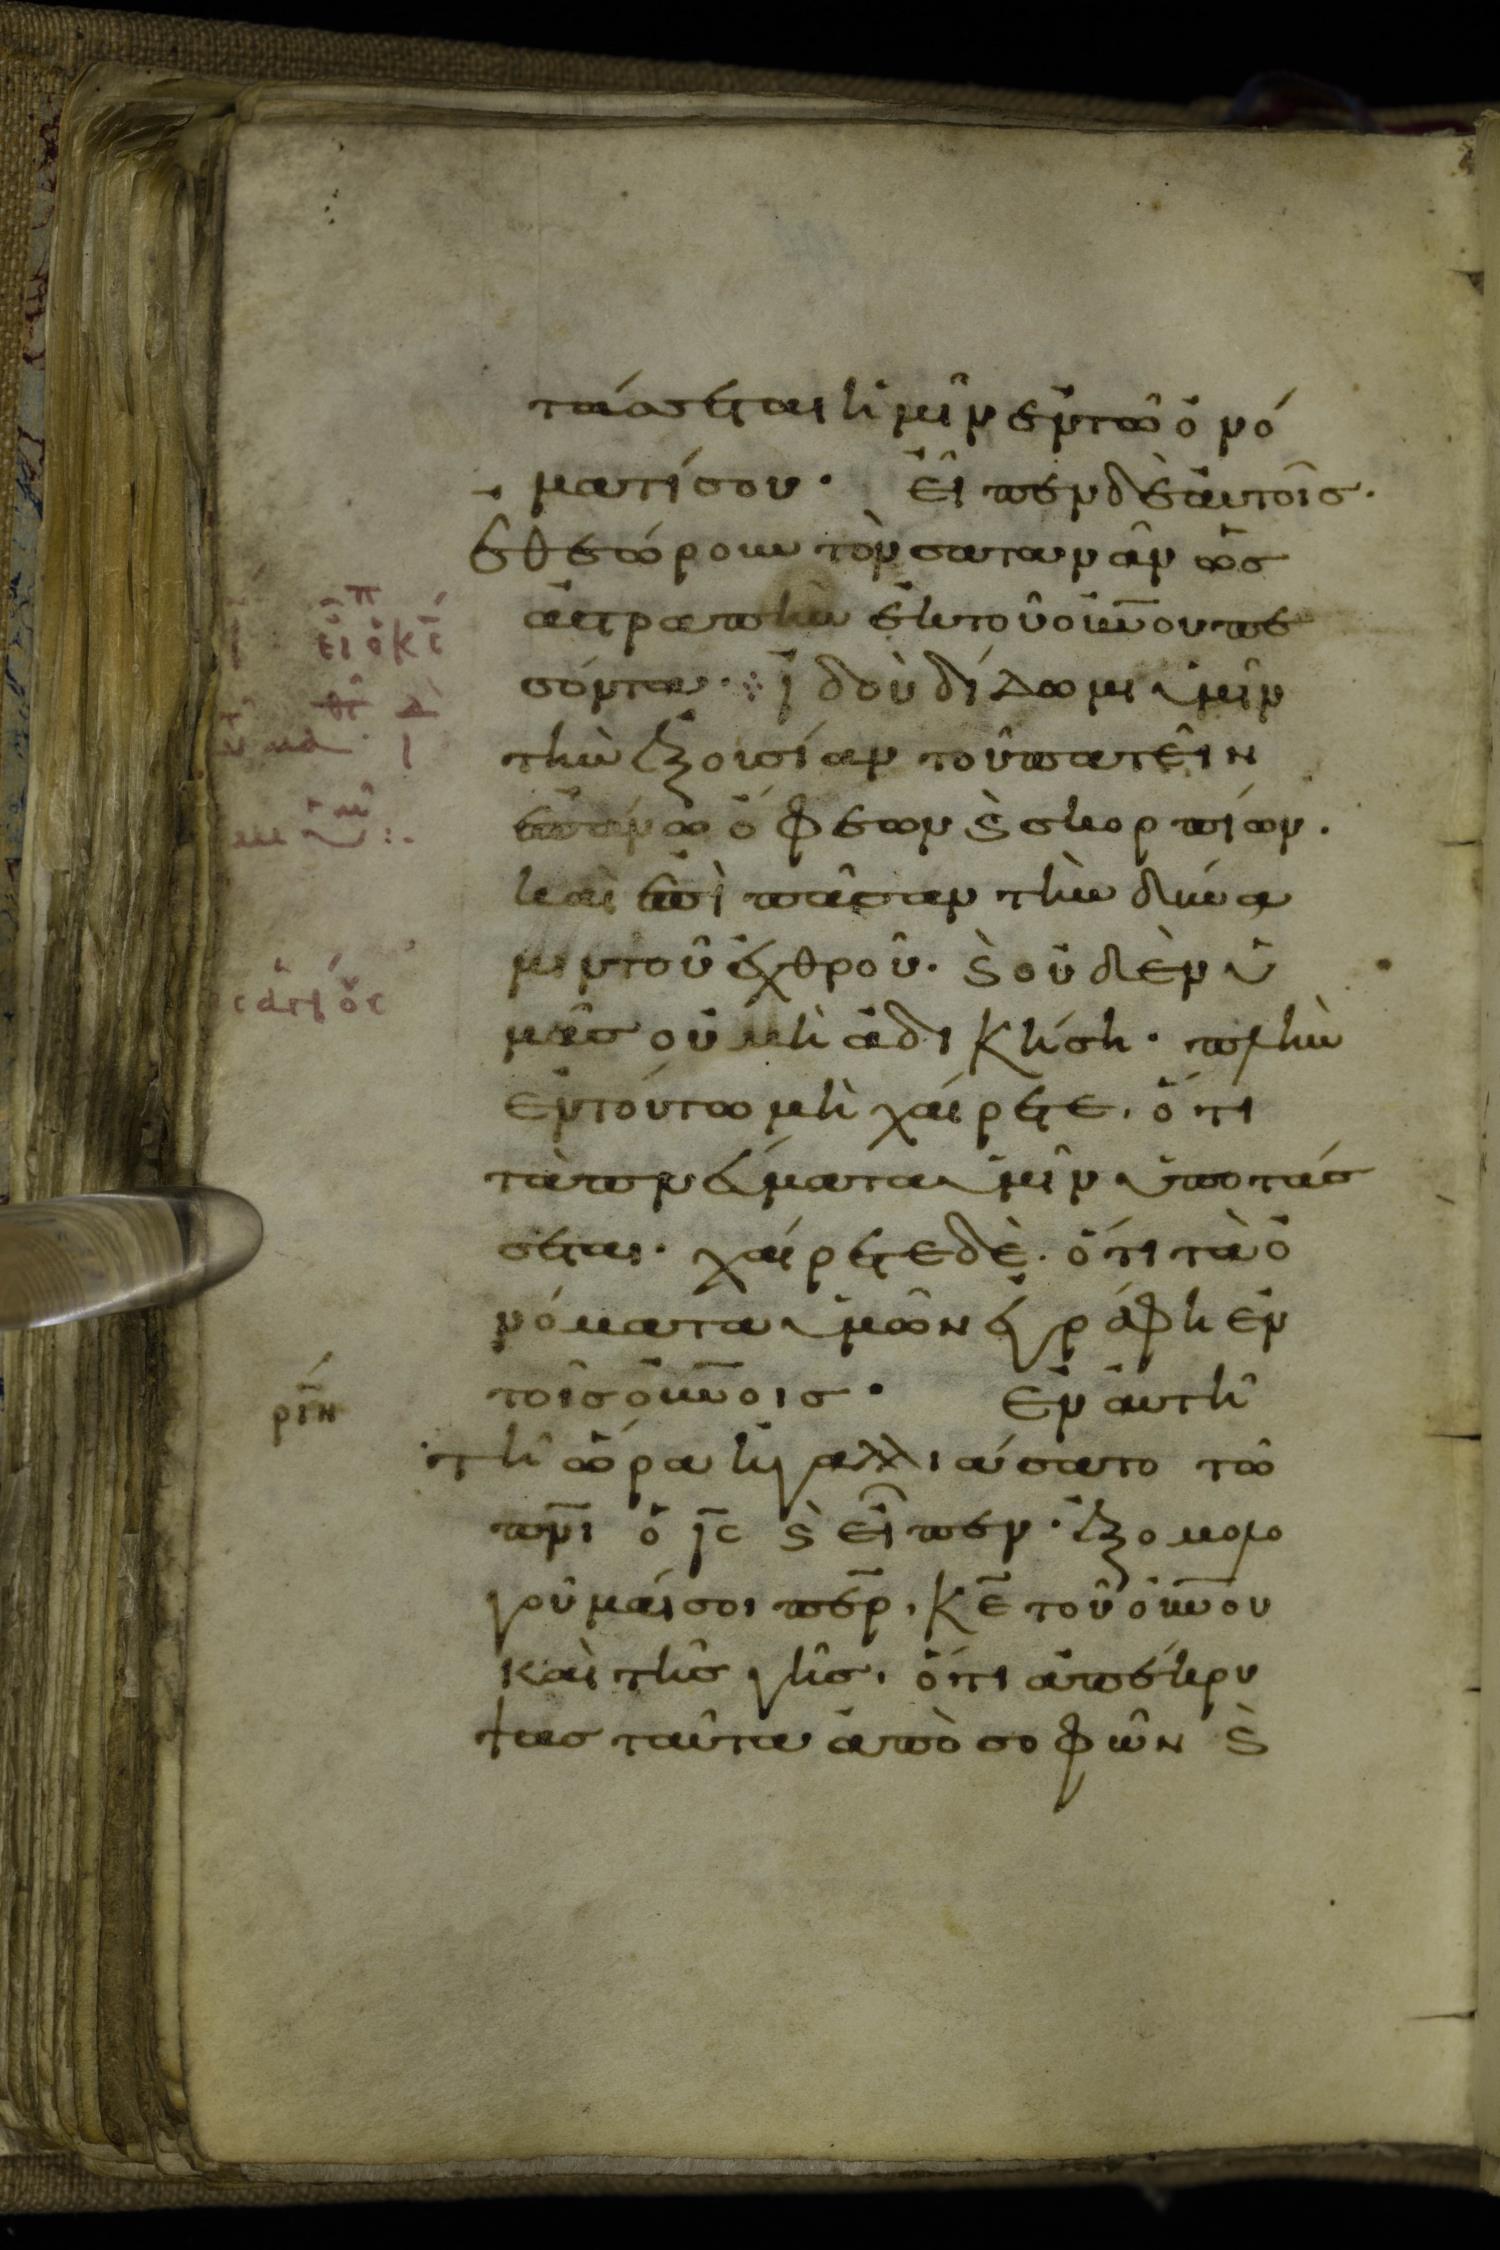 τάσσεται ἡμῖν ἐν τῷ ὀνό
ματί σου· εἶπεν δὲ αὐτοῖς·
ἐθεώρουν τὸν σατανᾶν ὡς
ἀστραπὴν ἐκ τοῦ οὐ̅νου πε
σόντα· ἰδοὺ δίδωμι ὑμῖν
τὴν ἐξουσίαν τοῦ πατεῖν
ἐπάνω ὄφεων ϗ σκορπίων.
καὶ ἐπὶ πᾶσαν τὴν δύνα
μιν τοῦ ἐχθροῦ· ϗ οὐδὲν ὑ
μᾶς οὐ μὴ ἀδικήσῃ· πλὴν
ἐν τούτω μὴ χαίρετε, ὅτι
τὰ πνεύματα ὑμῖν ὑποτάσ
σεται· χαίρετε δὲ. ὅτι τὰ ὀ
νόματα ὑμῶν ἐγράφη ἐν
τοῖς οὐ̅νοις· ἐν αὐτῆ
ρι̅ν
τῆ ὥρα ἠγαλλιάσατο τῶ
πν̅ι ὁ ι̅ς ϗ εἶπεν· ἐξομολο
γοῦμαί σοι πε̅ρ, κ̅ε τοῦ οὐ̅νου
καὶ τῆς γῆς, ὅτι ἀπέκρυ
ψας ταῦτα ἀπὸ σοφῶν ϗ